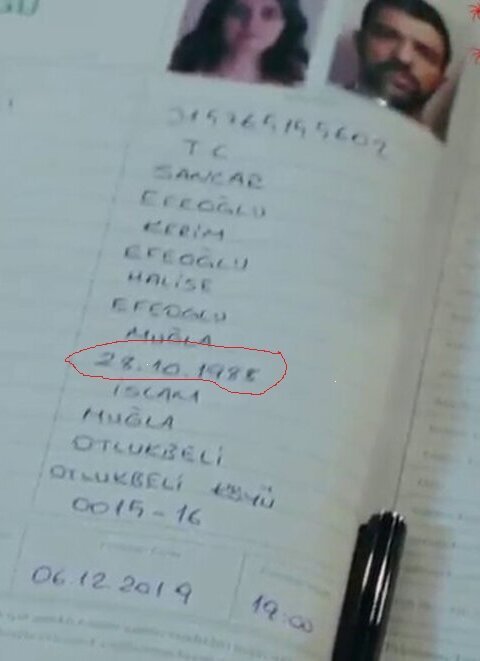 TC
SANCAR
EFEOĞLU
KERİM
EFEOĞLU
HALİSE
EFEOGLU
MUĞLA
28.10.1988
İSLAM
MUĞLA
OTLUKBELİ
OTLUKBELİ KÖYÜ
0015-16
06.12.2019
19:00